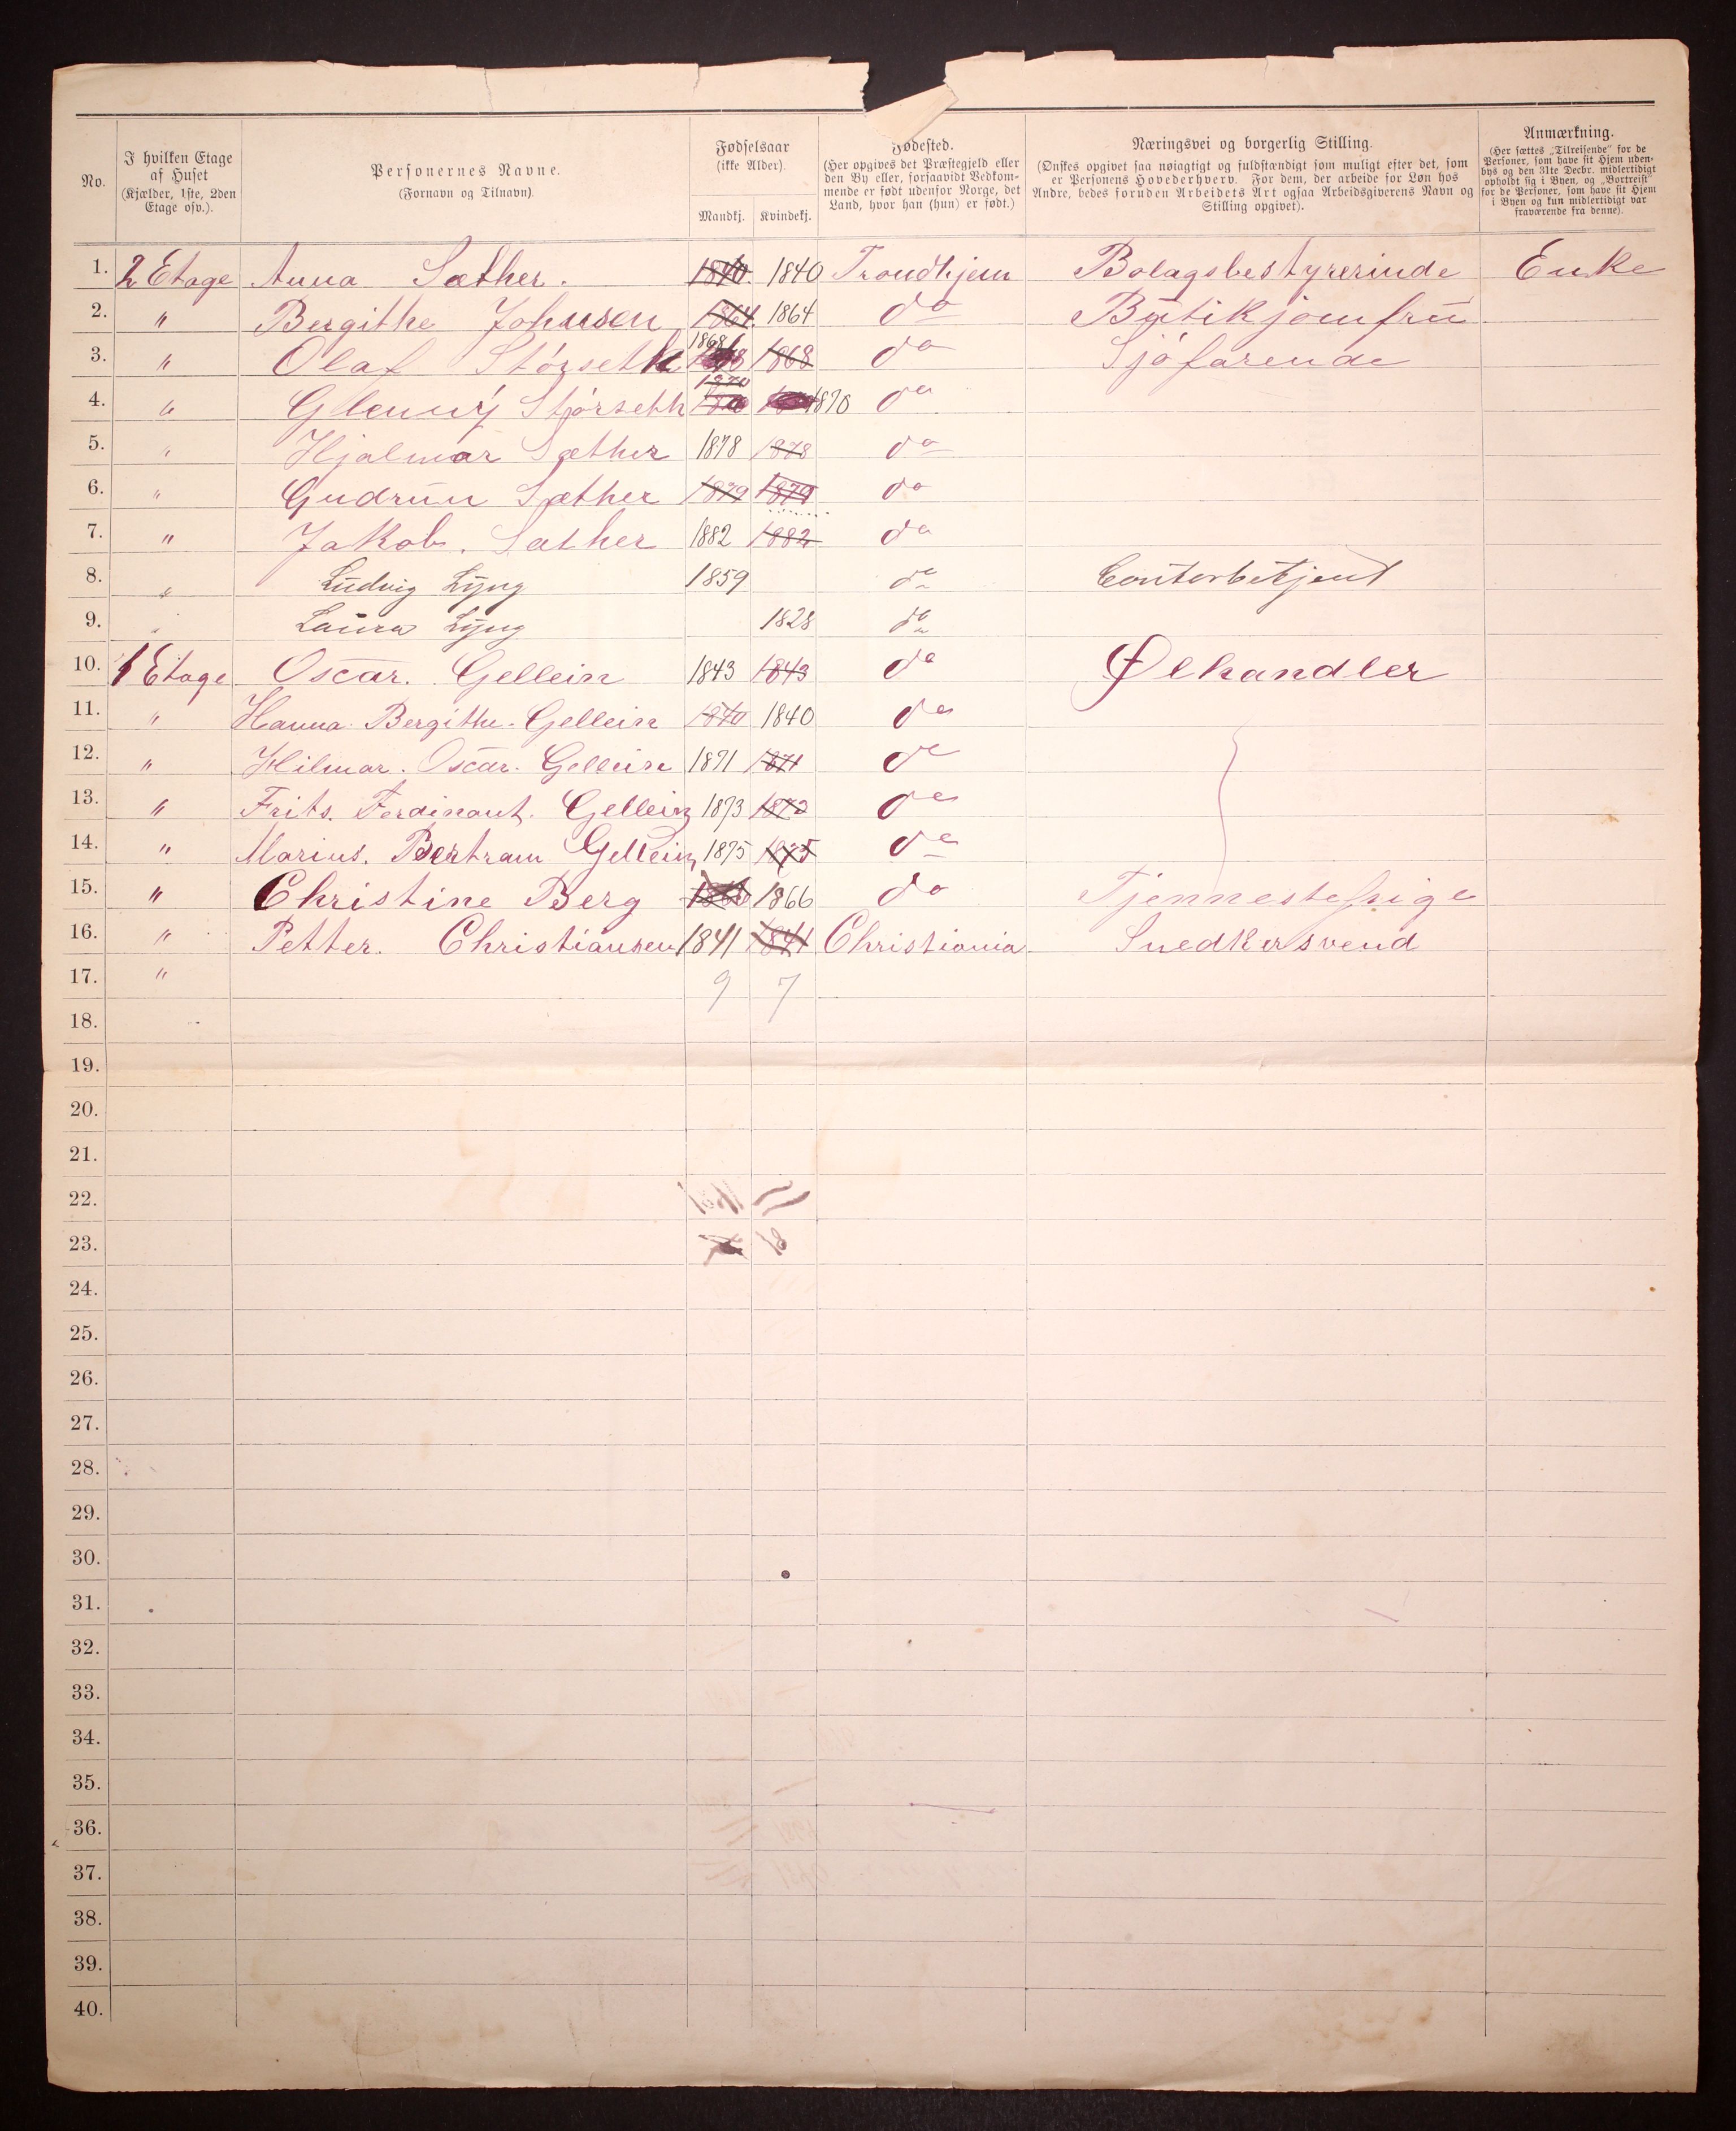 No. I hvilken Etage af Huset (Kjælder, 1ste, 2den Etage osv.). Personernes Navne. (Fornavn og Tilnavn). Fødselsaar (ikke Alder). Mandkj. Kvindekj. Fødested. (Her opgives det Præstegjeld eller den By eller, forsaavidt Vedkommende er født udenfor Norge, det Land, hvor han (hun) er født.) Næringsvei og borgerlig Stilling. (Ønskes opgivet saa nøiagtigt og fuldstændigt som muligt efter det, som er Personens Hovederhverv. For dem, der arbeide for Løn hos Andre, bedes foruden Arbeidets Art ogsaa Arbeidsgiverens Navn og Stilling opgivet). Anmærkning. (Her sættes „Tilreisende“ for de Personer, som have sit Hjem udenbys og den 31te Decbr. midlertidigt opholdt sig i Byen, og „Bortreist“ for de Personer, som have sit Hjem i Byen og kun midlertidigt var fraværende fra denne).
1. 2 Etage Anna Sæther. 1840. 1840 Trondhjem Bolagsbestyrerinde Enke
2. " Bergithe Johnsen 1864. 1864 do Butikjomfru
3. " Olaf Störseth 1868 1868 do Sjöfarende
4. " Glenny Störseth 1870 1870 do
5. " Hjalmar Sæther 1878 1878 do
6. " Gudrun Sæther 1879 1879 do
7. " Jakob. Sæther 1882 1882 do
8. " Ludvig Lyng 1859 do Contorbetjent
9. " Laura Lyng 1828 do
10. 1 Etage Oscar. Gellein 1843 1843 do Ølhandler
11. " Hanna Bergithe Gellein 1840 1840 do
12. " Hilmar. Oscar. Gellein 1871 1871 do
13. " Frits. Ferdinant. Gellein 1873 1873 do
14. " Marius. Bertram Gellein 1875 1875 do
15. " Christine Berg 1866 1866 do Tjennestepige
16. " Petter. Christiansen 1841 1841 Christiania Snedkersvend
17. " 9 7
18.
19.
20.
21.
22.
23.
24.
25.
26.
27.
28.
29.
30.
31.
32.
33.
34.
35.
36.
37.
38.
39.
40.